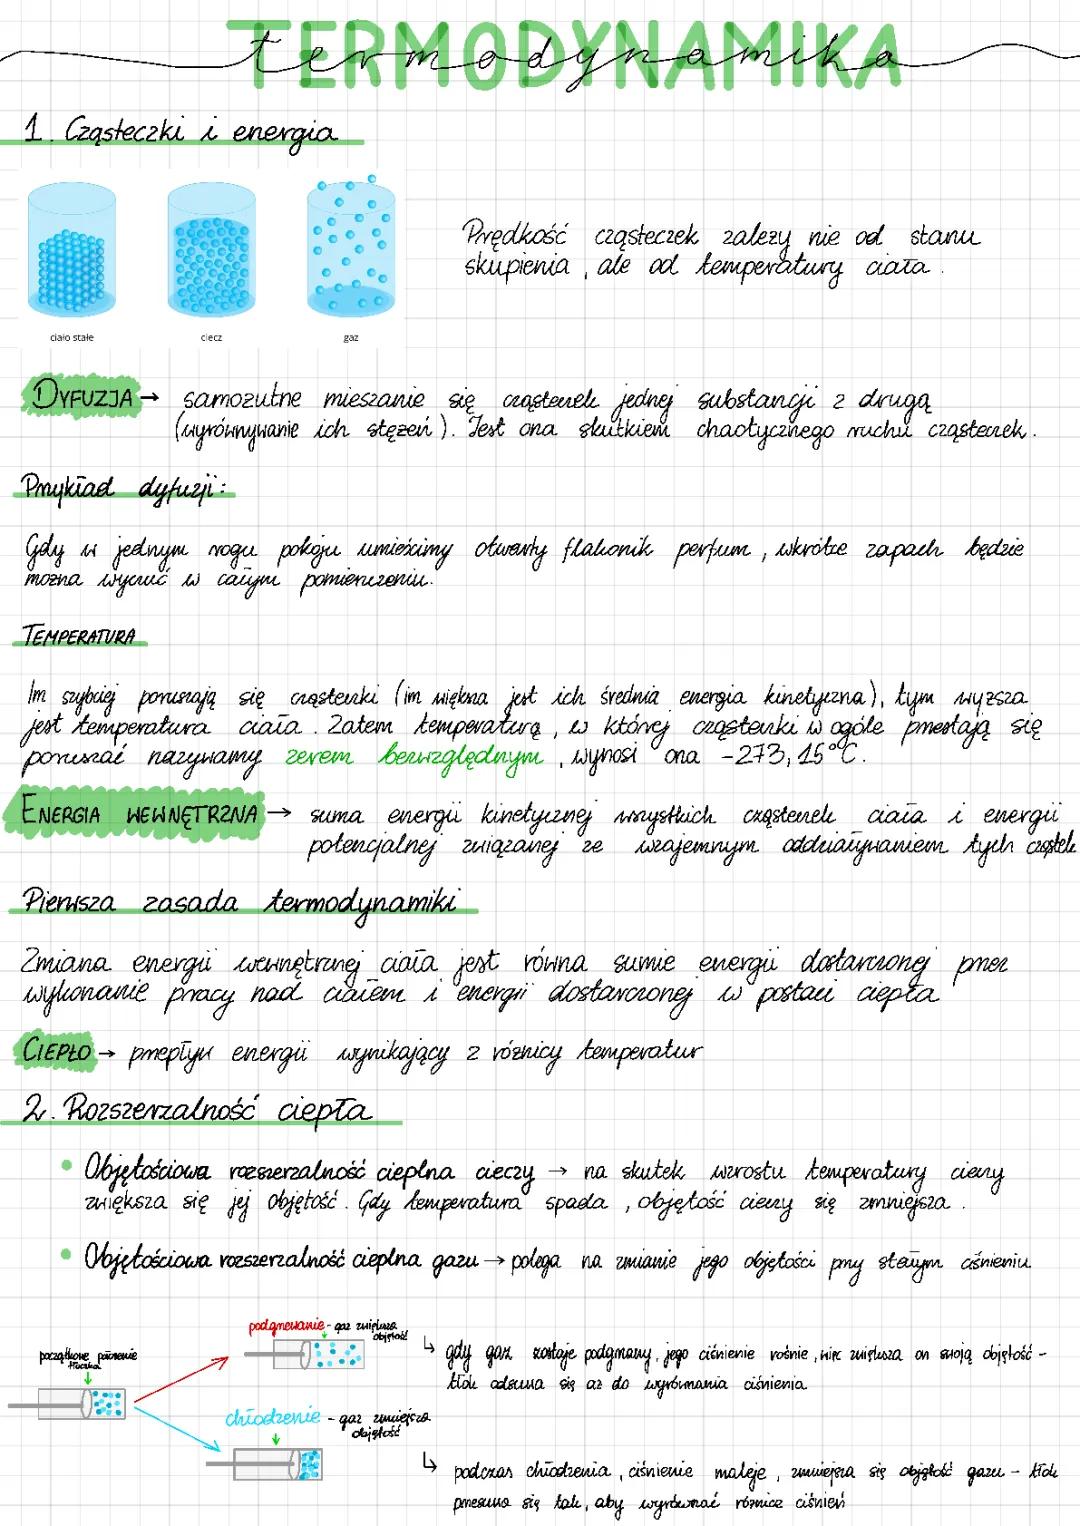 TERMODYNAMIKA
termodynamika
1. Cząsteczki i energia
ciało stałe
ciecz
gaz
Prędkość cząsteczek zależy nie od stanu
skupienia, ale od temperatury ciała.
DYFUZJA → samorzutne mieszanie się cząsteczek jednej substancji z drugą
(wyrównywanie ich stężeń). Jest ona skutkiem chaotycznego ruchu cząsteczek.
Przykład dyfuzji:
Gdy w jednym rogu pokoju umieścimy otwarty flakonik perfum, wkrótce zapach będzie
można wyczuć w całym pomieszczeniu.
TEMPERATURA
Im szybciej poruszają się cząsteczki (im większa jest ich średnia energia kinetyczna), tym wyższa
jest temperatura ciała. Zatem temperaturę, w której cząsteczki w ogóle przestają się
poruszać nazywamy zerem bezwzględnym, wynosi ona -273,15°C.
ENERGIA WEWNĘTRZNA → suma energii kinetycznej wszystkich cząsteczek ciała i energii
potencjalnej związanej ze wzajemnym oddziaływaniem tych cząstek
Pierwsza zasada termodynamiki
Zmiana energii wewnętrznej ciała jest równa sumie energii dostarczonej przez
wykonanie pracy nad ciałem i energii dostarczonej w postaci ciepła
CIEPŁO → przepływ energii wynikający z różnicy temperatur
2. Rozszerzalność ciepła
• Objętościowa rozszerzalność cieplna cieczy → na skutek wzrostu temperatury cieczy
zwiększa się jej objętość. Gdy temperatura spada, objętość cieczy się zmniejsza.
• Objętościowa rozszerzalność cieplna gazu → polega na zmianie jego objętości przy stałym ciśnieniu
początkowe położenie
tłoczka
podgrzewanie - gaz zwiększa
objętość
↳ gdy gaz zostaje podgrzany, jego ciśnienie rośnie, więc zwiększa on swoją objętość -
tłok odsuwa się aż do wyrównania ciśnienia
chłodzenie - gaz zmniejsza
objętość
↳ podczas chłodzenia, ciśnienie maleje, zmniejsza się objętość gazu - tłok
przesuwa się tak, aby wyrównać różnicę ciśnień